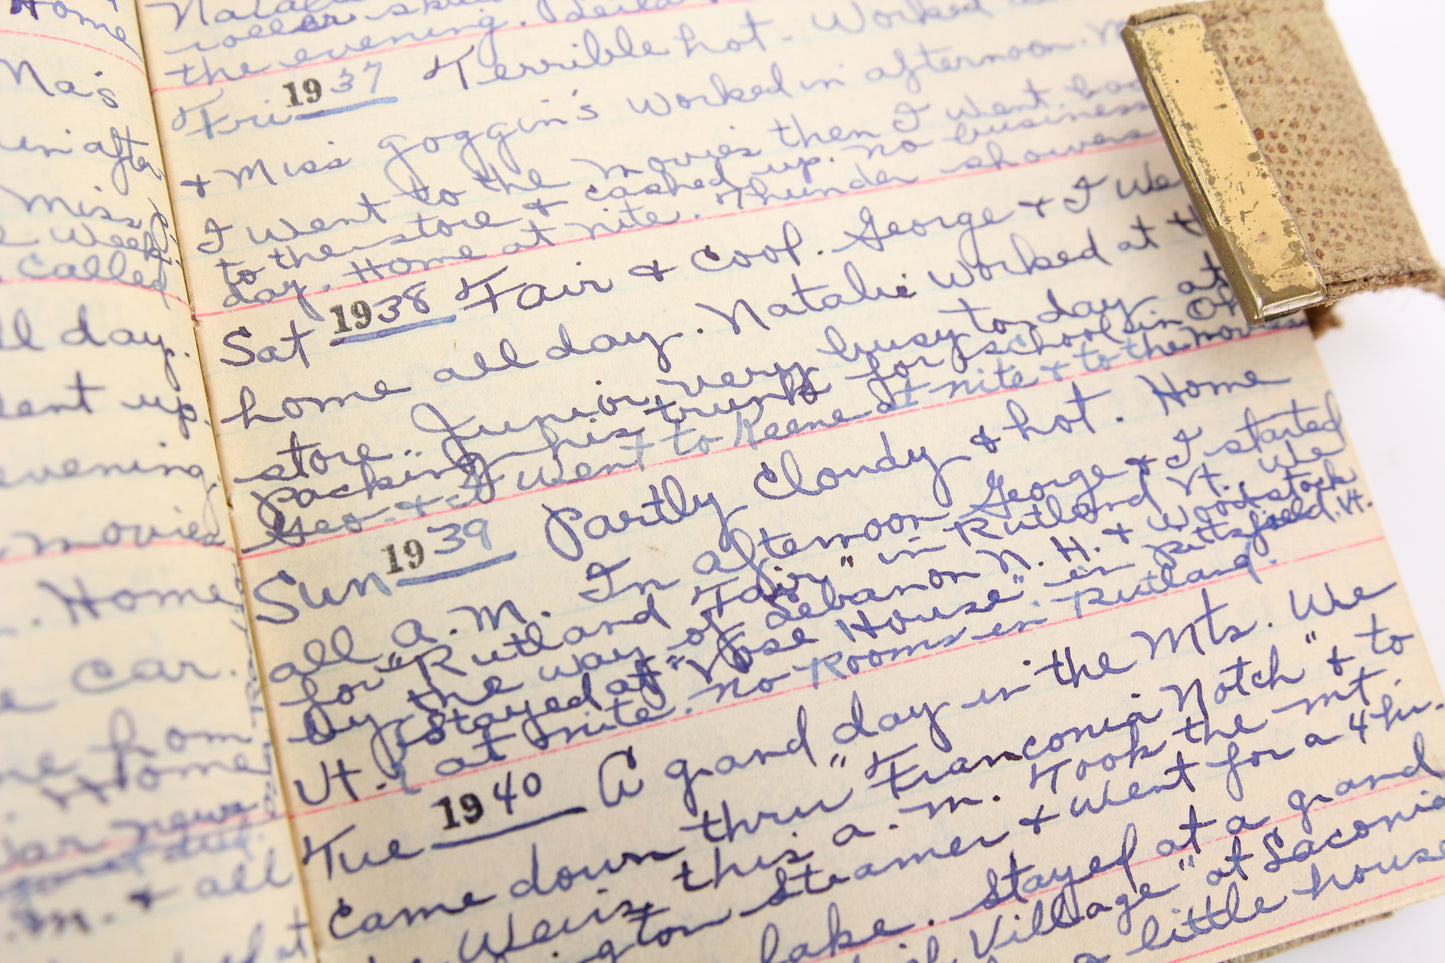 Home
Ma's
in after
Miss
Week
Called
ll day.
ent up.
evening
movies
. Home
e car.
ne hom
Home
war news
m. & all
at
Natalie
roller
the evening.
Fri 1937 Terrible hot - Worked
& Miss Goggin's worked in afternoon.
I went to the movies then I went bac
to the store & cashed up. no business
day. Home at nite. Thunder showers
Sat 1938 Fair & Cool. George & I We
home all day. Natalie worked at t
store. Junior very busy to-day at
packing his trunk for school in
Geo - & I went to Keene at nite & to the movi
Sun 1939 Partly cloudy & hot. Home
all A.M. In afternoon George & I started
for "Rutland Fair" in Rutland Vt. We
by the way of Lebanon N.H. & Woodstock
Vt. Stayed at "Vose House" in Pittsfield, Vt.
at nite. No Rooms in Rutland.
Tue 1940 A grand day in the Mts. We
came down thru "Franconia Notch" & to
Weirs this a.m. Took the Mt.
ington Steamer & went for a 4 hr.
lake. Stayed at a grand
Village" at Laconia
a little house